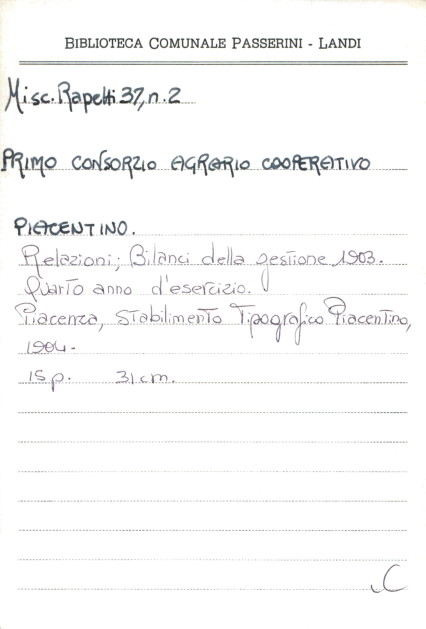 BIBLIOTECA COMUNALE PASSERINI - LANDI
Misc. Rapetti 37, n. 2
PRIMO CONSORZIO AGRARIO COOPERATIVO
PIACENTINO.
Relazioni; Bilanci della gestione 1903.
Quarto anno d'esercizio.
Piacenza, Stabilimento Tipografico Piacentino,
1904.
15 p. 31 cm.
C